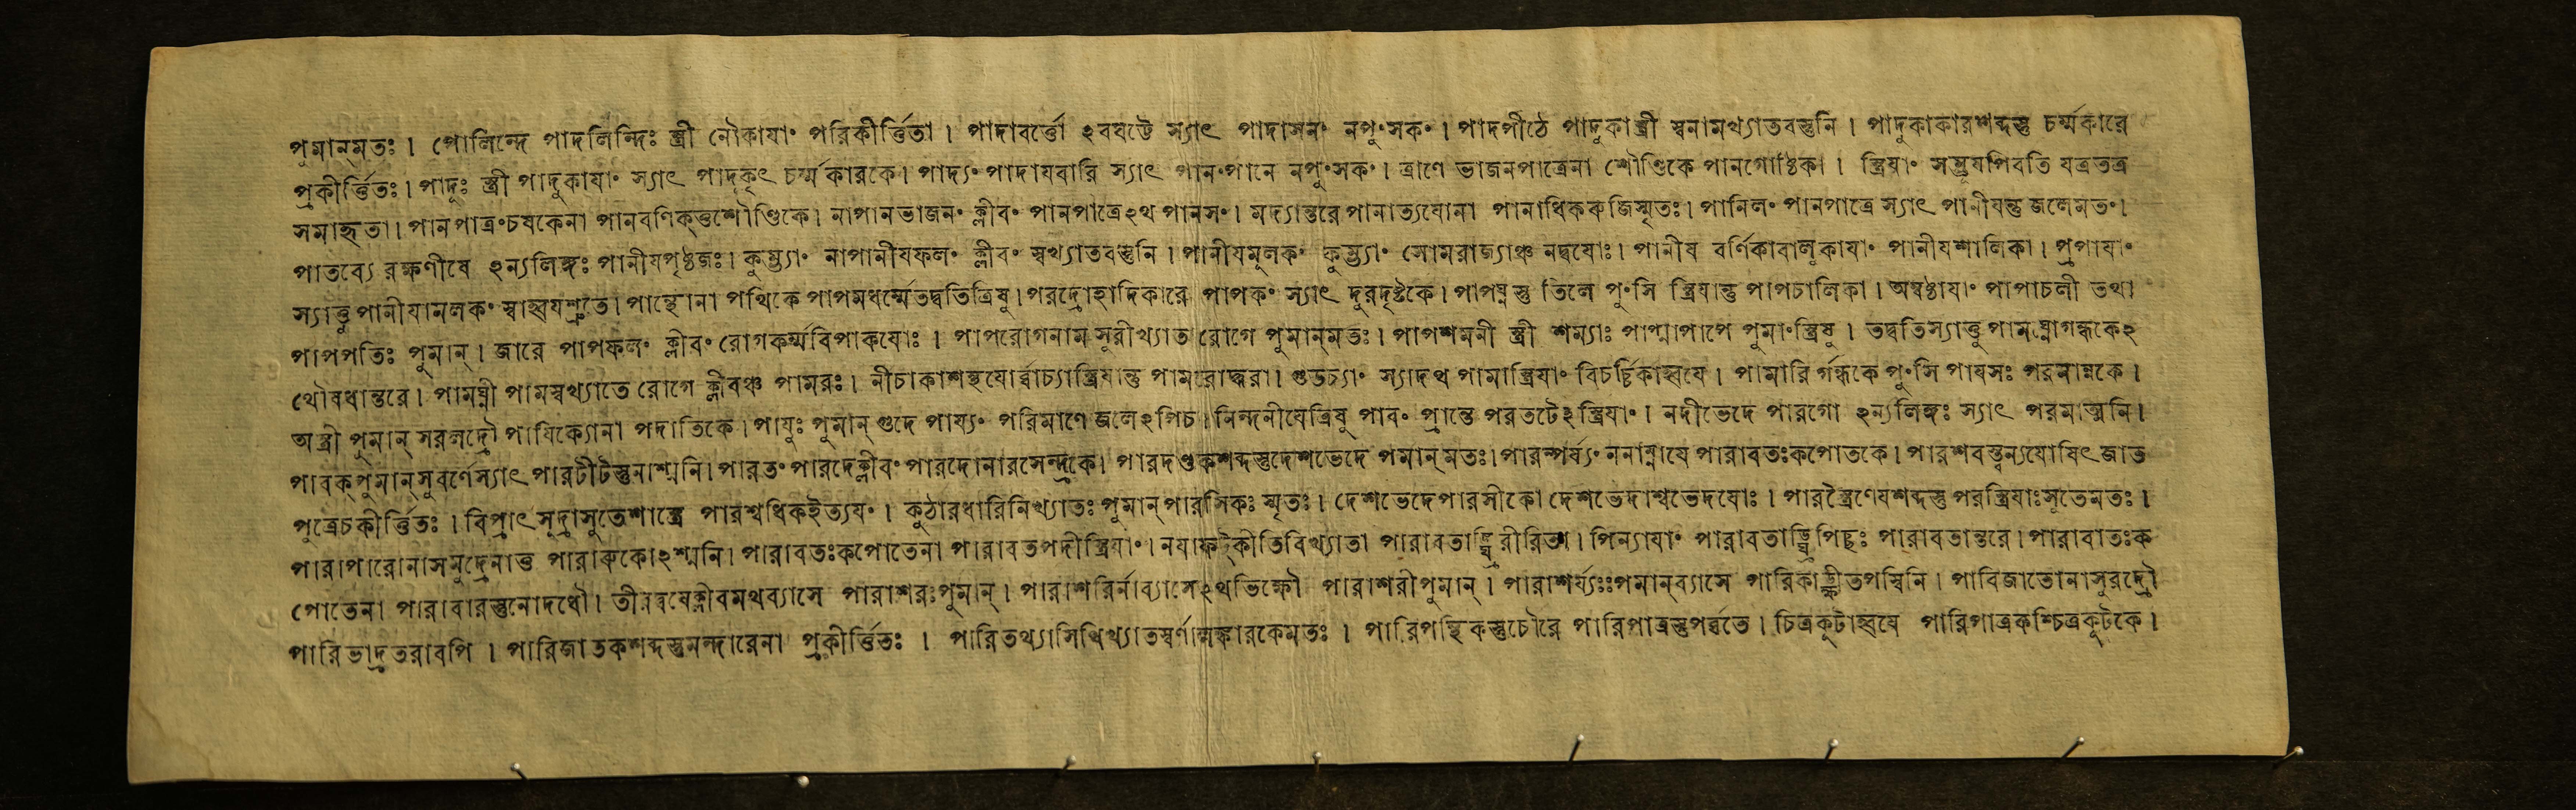 পুমান্মতঃ। পোলিন্দে পাদলিন্দিঃ স্ত্রী নৌকাযাং পরিকীর্ত্তিতা। পাদাবর্ত্তো ঽবঘট্টে স্যাৎ পাদাসনং নপুংসকং। পাদপীঠে পাদুকাস্ত্রী স্বনামখ্যাতবস্তুনি। পাদুকাকারশব্দস্তু চর্ম্মকারে
প্রকীর্ত্তিতঃ। পাদূঃ স্ত্রী পাদুকাযাং স্যাৎ পাদূকৃৎ চর্ম্মকারকে। পাদ্যং পাদাযবারি স্যাৎ পানংপানে নপুংসকং। ত্রাণে ভাজনপাত্রেনা শৌণ্ডিকে পানগোষ্ঠিকা। স্ত্রিযাং সম্ভূযপিবতি যত্রতত্র
সমাহৃতা। পানপাত্রংচষকেনা পানবণিক্তুশৌণ্ডিকে। নাপানভাজনং ক্লীবং পানপাত্রেঽথ পানসং। মদ্যান্তরে পানাত্যযোনা পানাধিককজিস্মৃতঃ। পানিলং পানপাত্রে স্যাৎ পানীযন্তু জলেমতং।
পাতব্যে রক্ষণীযে ঽন্যলিঙ্গঃ পানীযপৃষ্ঠজঃ। কুম্ভ্যাং নাপানীযফলং ক্লীবং স্বখ্যাতবস্তুনি। পানীযমূলকং কুম্ভ্যাং সোমরাজ্যাঞ্চ নদ্বযোঃ। পানীয বর্ণিকাবালূকাযাং পানীযশালিকা। প্রপাযাং
স্যাত্তু পানীযামলকং স্বাহ্বযশ্রুতে। পান্থোনা পথিকে পাপমধর্ম্মেতদ্বতিত্রিষু। পরদ্রোহাদিকারে পাপকং স্যাৎ দুরদৃষ্টকে। পাপঘ্নস্তু তিলে পুংসি স্ত্রিযান্তু পাপচালিকা। অম্বষ্ঠাযাং পাপাচলী তথা
পাপপতিঃ পুমান্। জারে পাপফলং ক্লীবং রোগকর্ম্মবিপাকযোঃ। পাপরোগনাম সূরীখ্যাত রোগে পুমান্মতঃ। পাপশমনী স্ত্রী শম্যাঃ পাপ্মাপাপে পুমাংস্ত্রিষু। তদ্বতিস্যাত্তু পামঘ্নোগন্ধকেঽ
থৌষধান্তরে। পামঘ্নী পামস্বখ্যাতে রোগে ক্লীবঞ্চ পামরঃ। নীচাকাশন্থযোর্ব্বাচ্যাস্ত্রিযান্তু পামরোদ্ধরা। গুডচ্যাং স্যাদথ পামাস্ত্রিযাং বিচর্চ্চিকাহ্বযে। পামারি র্গন্ধকে পুংসি পাযসঃ পরমান্নকে।
অস্ত্রী পুমান্ সরলদ্রৌ পাযিক্যোনা পদাতিকে। পাযুঃ পুমান্ গুদে পায্যং পরিমাণে জলেঽপিচ। নিন্দনীযেত্রিষু পাবং প্রান্তে পরতটেঽস্ত্রিযাং। নদীভেদে পারগো ঽন্যলিঙ্গঃ স্যাৎ পরমাত্মনি।
পাবক্পুমান্সুবর্ণেস্যাৎ পারটীটস্তুনাশ্মনি। পারতং পারদেক্লীবং পারদোনারসেন্দ্রকে। পারদণ্ডকশব্দস্তুদেশভেদে পমান্মতঃ। পারম্পর্য্যং ননাম্নাযে পারাবতঃকপোতকে। পারশবস্ত্বন্যযোষিৎ জাত
পুত্রেচকীর্ত্তিতঃ। বিপ্রাৎ সূদ্রাসুতেশাস্ত্রে পারশ্বধিকইত্যযং। কুঠারধারিনিখ্যাতঃ পুমান্পারসিকঃ স্মৃতঃ। দেশভেদেপারসীকো দেশভেদাশ্বভেদযোঃ। পারস্ত্রৈণেযশব্দস্তু পরস্ত্রিযাঃসুতেমতঃ।
পারাপারোনাসমুদ্রেনাত্ত পারারুকোঽশ্মনি। পারাবতঃকপোতেনা পারাবতপদীস্ত্রিযাং। নযাফট্কীতিবিখ্যাতা পারাবতাঙ্ঘ্রিরীরিতা। পিন্যাযাং পারাবতাঙ্ঘ্রিপিচ্ছঃ পারাবতান্তরে। পারাবাতঃক
পোতেনা পারাবারস্তুনোদধৌ। ক্লীবমথব্যাসে পারাশরঃপুমান্। পারাশরির্নাব্যাসেঽথভিক্ষৌ পারাশরীপুমান্। পারাশর্য্যঃঃপমান্ব্যাসে পারিকাঙ্ক্ষীতপস্বিনি। পাবিজাতোনাসুরদ্রৌ
পারিভাদ্রতরাবপি। পারিজাতকশব্দস্তুমন্দারেনা প্রকীর্ত্তিতঃ। পারিতথ্যাসিথিখ্যাতস্বর্ণালঙ্কারকেমতঃ। পারিপন্থিকস্তুচৌরে পারিপাত্রস্তুপর্ব্বতে। চিত্রকুটাহ্বযে পারিপাত্রকশ্চিত্রকূটকে।